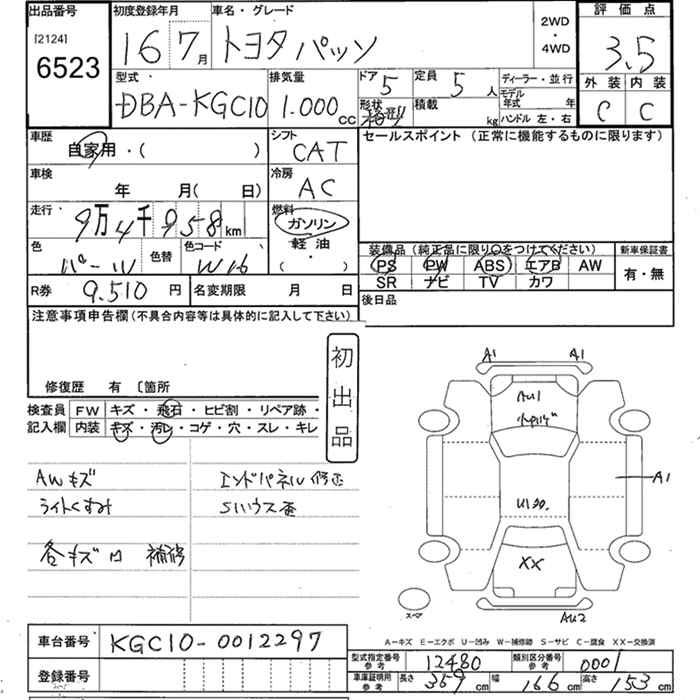 出品番号
[2124]
6523
初度登録年月
16 7月
車名・グレード
トヨタ パッソ
2WD
・
4WD
評価点
3.5
外装 内装
C C
型式
DBA-KGC10
排気量
1.000 cc
ドア 5
定員 5 人
形状
積載 kg
ディーラー・並行
モデル年式 年
ハンドル 左・右
車歴
自家用・( )
シフト
CAT
車検
年 月( 日)
冷房
AC
走行
9万4千958km
燃料
ガソリン
軽油
( ・ )
色
パール
色替
色コード
W16
R券 9.510 円
名変期限 月 日
セールスポイント(正常に機能するものに限ります)
装備品(純正品に限り○をつけてください)
PS PW ABS エアB AW
SR ナビ TV カワ
新車保証書
有・無
後日品
注意事項申告欄(不具合内容等は具体的に記入して下さい)
修復歴 有 〔箇所
初出品
検査員記入欄
FW キズ・飛石・ヒビ割・リペア跡・
内装 キズ・汚レ・コゲ・穴・スレ・キレ
AWキズ
ライトくすみ
各キズ凹 補修
エンドパネル修正
Sハウス歪
A1 A1
AU1
A1
XX
AU2
スペア
A-キズ E-エクボ U-凹み W-補修跡 S-サビ C-腐食 XX-交換済
車台番号 KGC10-0012297
登録番号
型式指定番号参考 12480
類別区分番号参考 0001
車庫証明用参考 長さ 359cm 幅 166cm 高さ 153cm